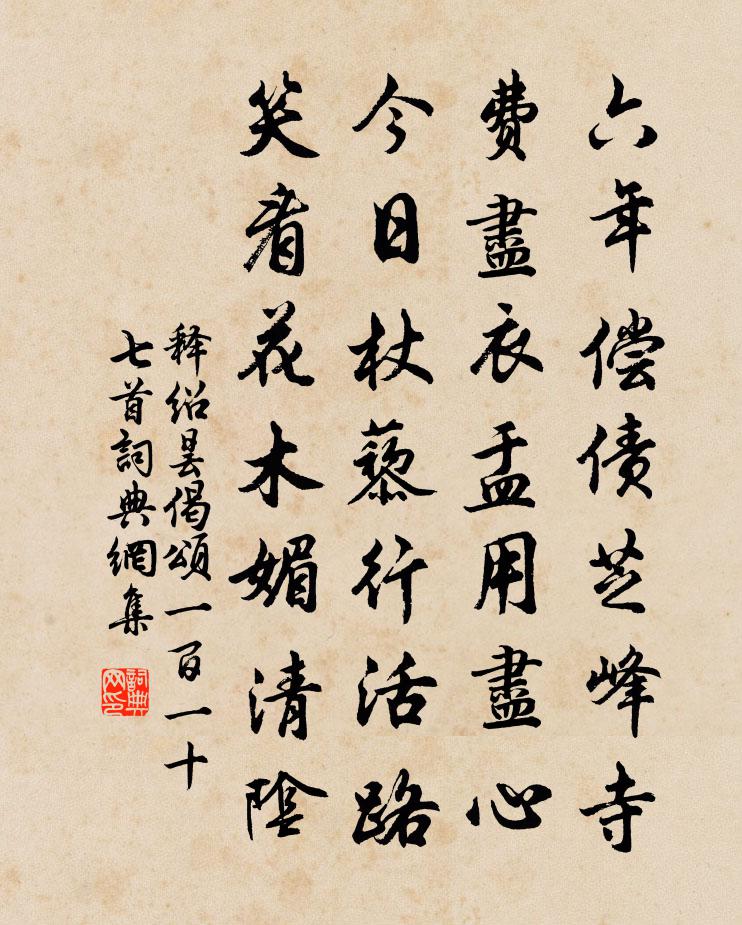 六年偿债芝峰寺
費盡衣盂用盡心
今日杖藜行活路
笑看花木媚清陰
释绍昙偈頌一百一十
七首詞典網集
詞典网印